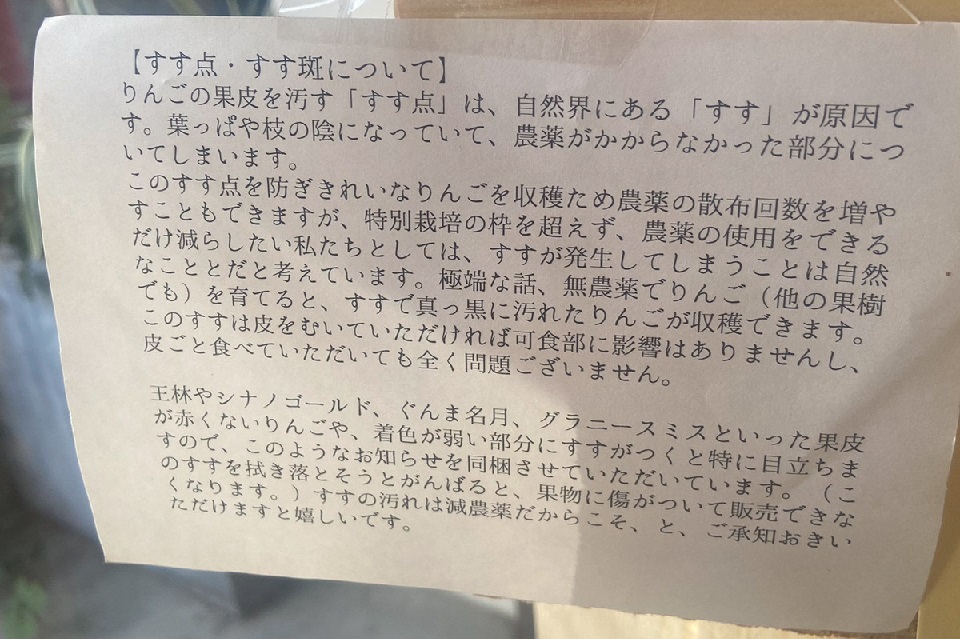 【すす点・すす斑について】
りんごの果皮を汚す「すす点」は、自然界にある「すす」が原因で
す。葉っぱや枝の陰になっていて、農薬がかからなかった部分につ
いてしまいます。
このすす点を防ぎきれいなりんごを収穫ため農薬の散布回数を増や
すこともできますが、特別栽培の枠を超えず、農薬の使用をできる
だけ減らしたい私たちとしては、すすが発生してしまうことは自然
なこととだと考えています。極端な話、無農薬でりんご（他の果樹
でも）を育てると、すすで真っ黒に汚れたりんごが収穫できます。
このすすは皮をむいていただければ可食部に影響はありませんし、
皮ごと食べていただいても全く問題ございません。
王林やシナノゴールド、ぐんま名月、グラニースミスといった果皮
が赤くないりんごや、着色が弱い部分にすすがつくと特に目立ちま
すので、このようなお知らせを同梱させていただいています。（こ
のすすを拭き落とそうとがんばると、果物に傷がついて販売できな
くなります。）すすの汚れは減農薬だからこそ、と、ご承知おきい
ただけますと嬉しいです。